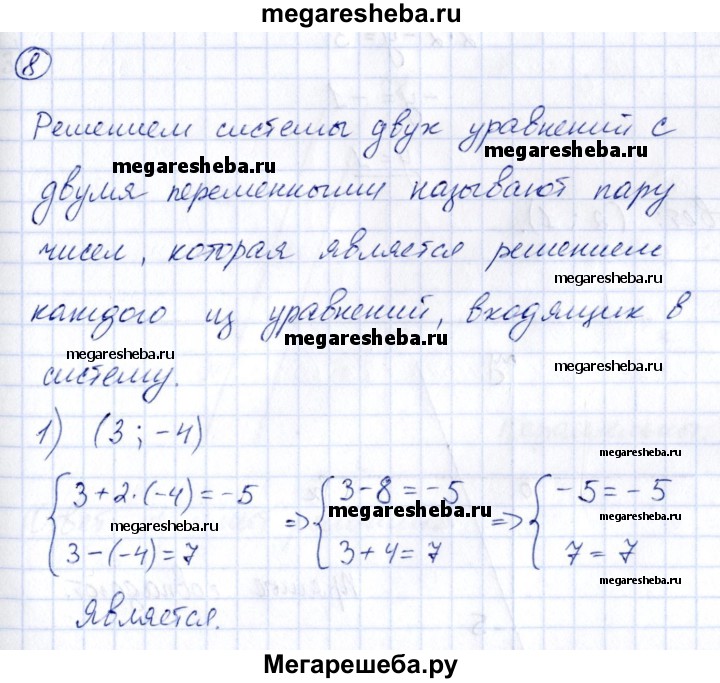 megaresheba.ru
8
Решением системы двух уравнений с
megaresheba.ru
megaresheba.ru
двумя переменными называют пару
чисел, которая является решением
megaresheba.ru
каждого из уравнений, входящих в
megaresheba.ru
megaresheba.ru
megaresheba.ru
систему.
1) (3; -4)
megaresheba.ru
{ 3+2·(-4)=-5 => { 3-8=-5 => { -5=-5
megaresheba.ru
megaresheba.ru
megaresheba.ru
3-(-4)=7 3+4=7 7=7
megaresheba.ru
Является.
Мегарешеба.ру